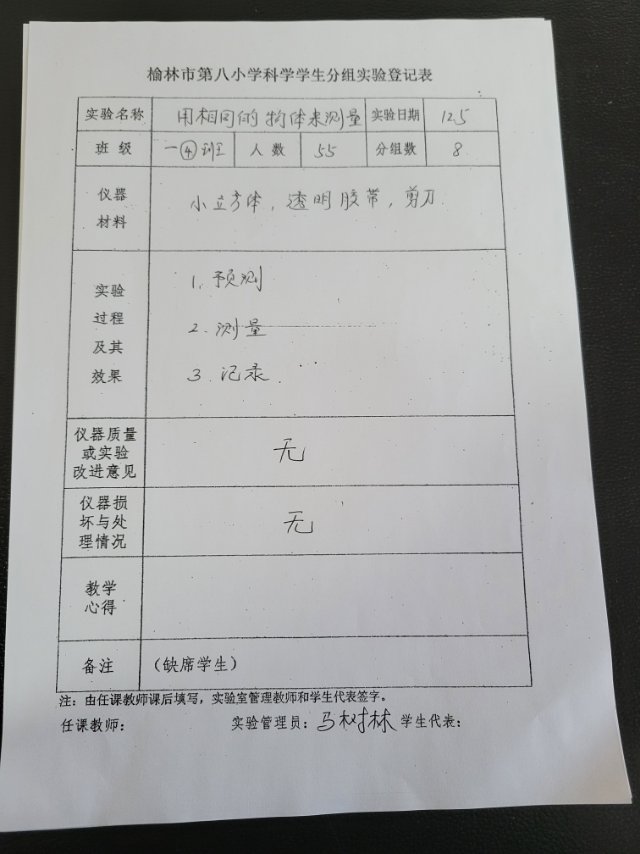 榆林市第八小学科学学生分组实验登记表
实验名称 用相同的物体来测量 实验日期 12.5
班级 一④班 人数 55 分组数 8
仪器
材料
小立方体，透明胶带，剪刀
实验
过程
及其
效果
1. 预测
2. 测量
3. 记录
仪器质量
或实验
改进意见
无
仪器损
坏与处
理情况
无
教学
心得
备注 （缺席学生）
注：由任课教师课后填写，实验室管理教师和学生代表签字。
任课教师： 实验管理员：马树林 学生代表：